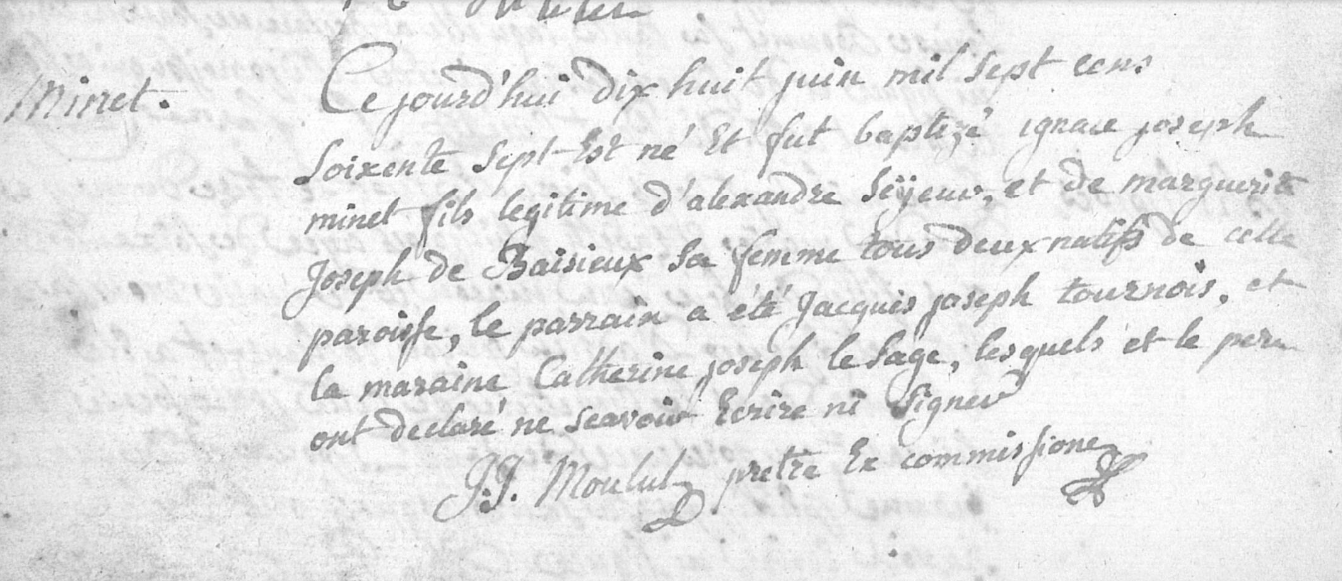 Minet.
Ce jourd'hui dix huit juin mil sept cens
soixente sept Est né Et fut baptizé ignace joseph
minet fils legitime d'alexandre Séyeur, et de marguerite
Joseph de Baisieux Sa femme tous deux natifs de cette
paroisse, le parrain a été Jacques joseph tournois, et
la maraine Catherine joseph le Sage, lesquels et le pere
ont declaré ne scavoir Ecrire ni Signer
J.J. pretre Ex commissione